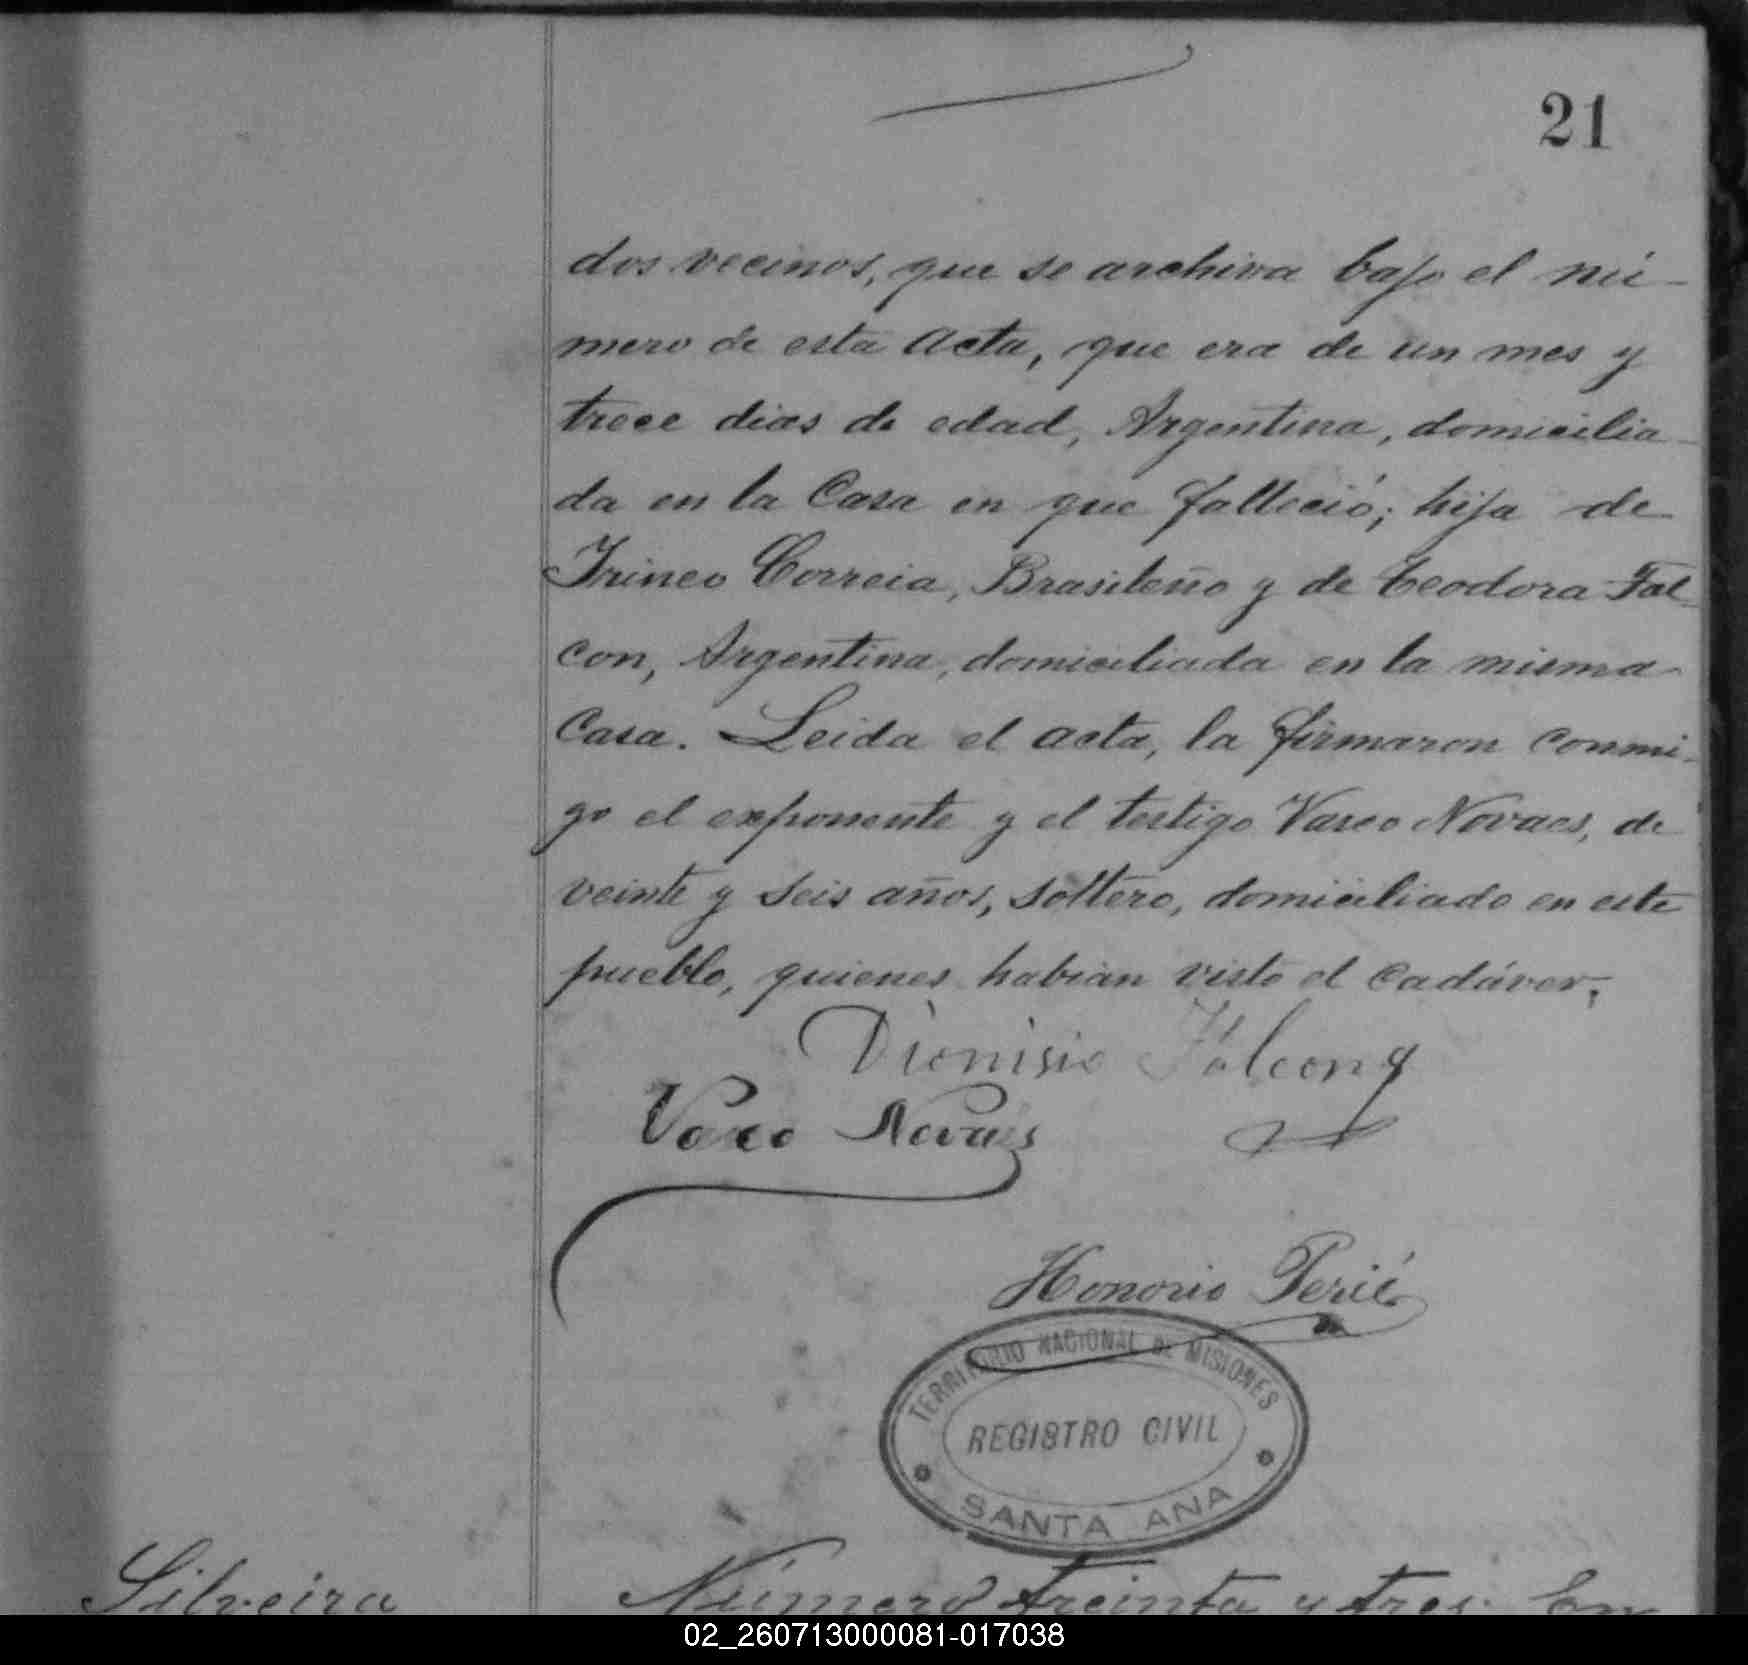 21
dos vecinos, que se archiva bajo el nú-
mero de esta Acta, que era de un mes y
trece dias de edad, Argentina, domicilia-
da en la Casa en que falleció; hija de
Irineo Correia, Brasileño y de Teodora Fal-
con, Argentina, domiciliada en la misma
Casa. Leida el acta, la firmaron conmi-
go el exponente y el testigo Vasco Novaes, de
veinte y seis años, soltero, domiciliado en este
pueblo, quienes habian visto el cadáver.
Dionisio Falcon y
Vasco Novaes
Honorio Perié
TERRITORIO NACIONAL DE MISIONES
REGISTRO CIVIL
SANTA ANA
Silveira
Número treinta y tres. En
02_260713000081-017038